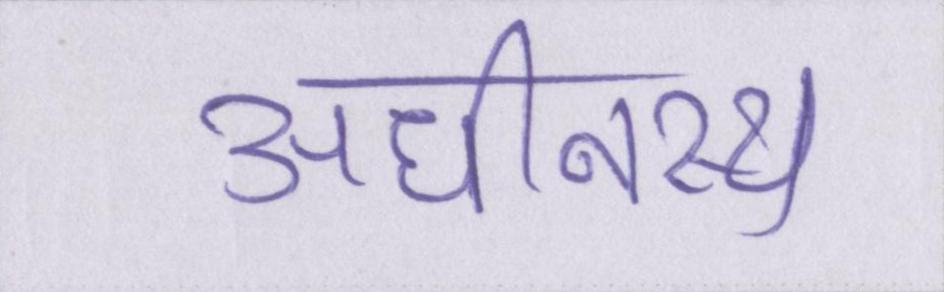 अधीनस्थ